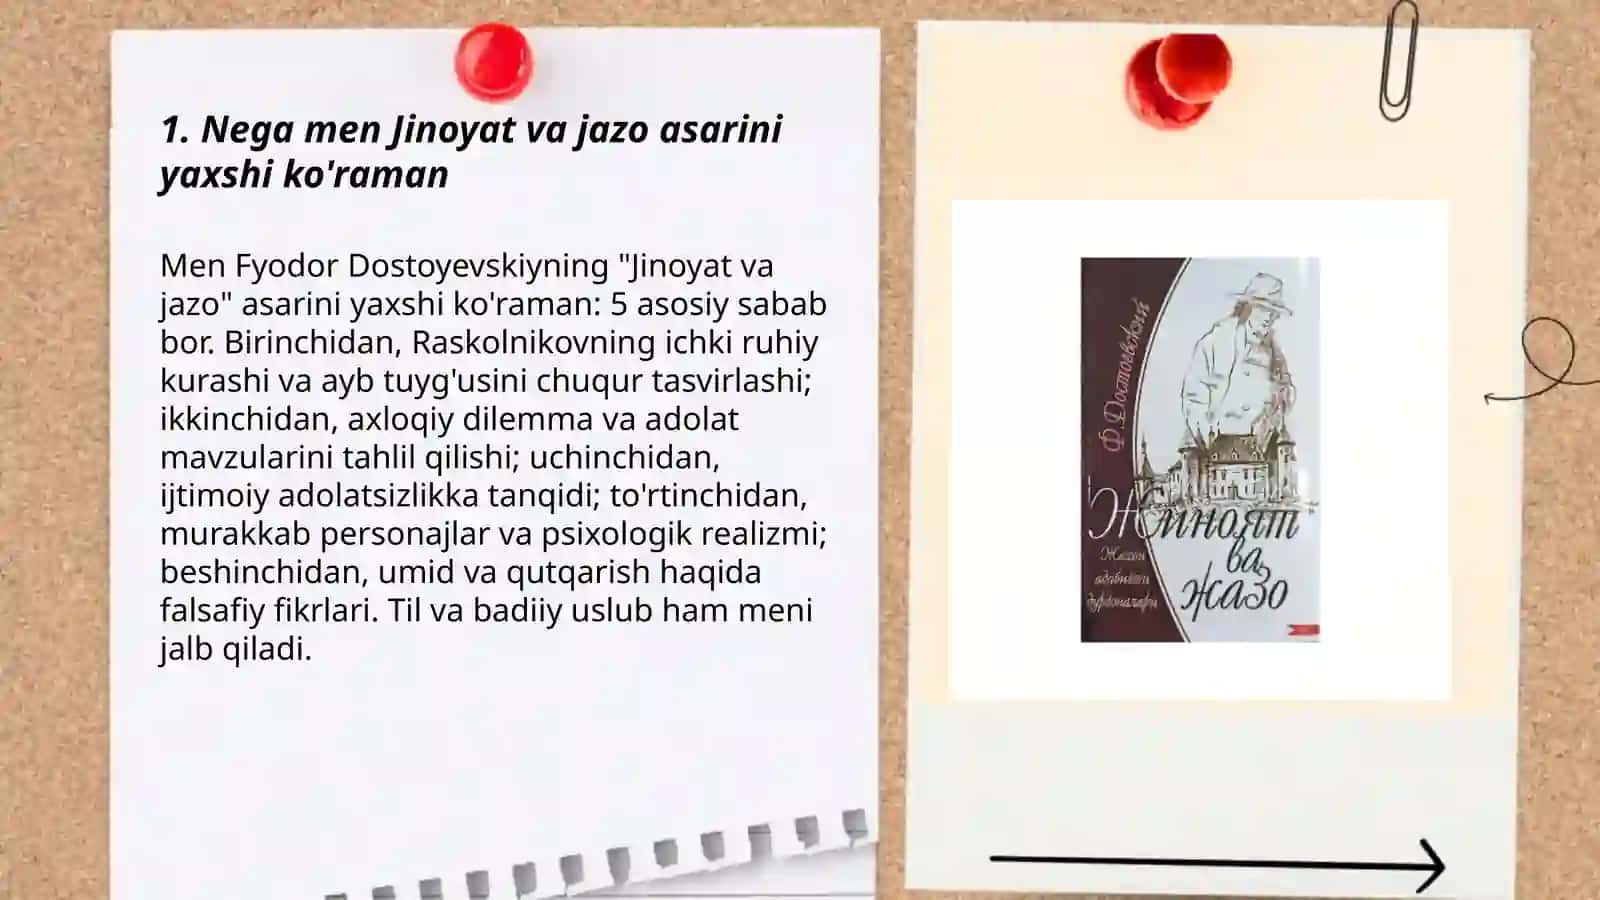 1. Nega men Jinoyat va jazo asarini
yaxshi ko'raman
Men Fyodor Dostoyevskiyning "Jinoyat va
jazo" asarini yaxshi ko'raman: 5 asosiy sabab
bor. Birinchidan, Raskolnikovning ichki ruhiy
kurashi va ayb tuyg'usini chuqur tasvirlashi;
ikkinchidan, axloqiy dilemma va adolat
mavzularini tahlil qilishi; uchinchidan,
ijtimoiy adolatsizlikka tanqidi; to'rtinchidan,
murakkab personajlar va psixologik realizmi;
beshinchidan, umid va qutqarish haqida
falsafiy fikrlari. Til va badiiy uslub ham meni
jalb qiladi.
Ф.Достоевский
Жиноят
ва
жазо
Жаҳон
адабиёти
дурдоналари